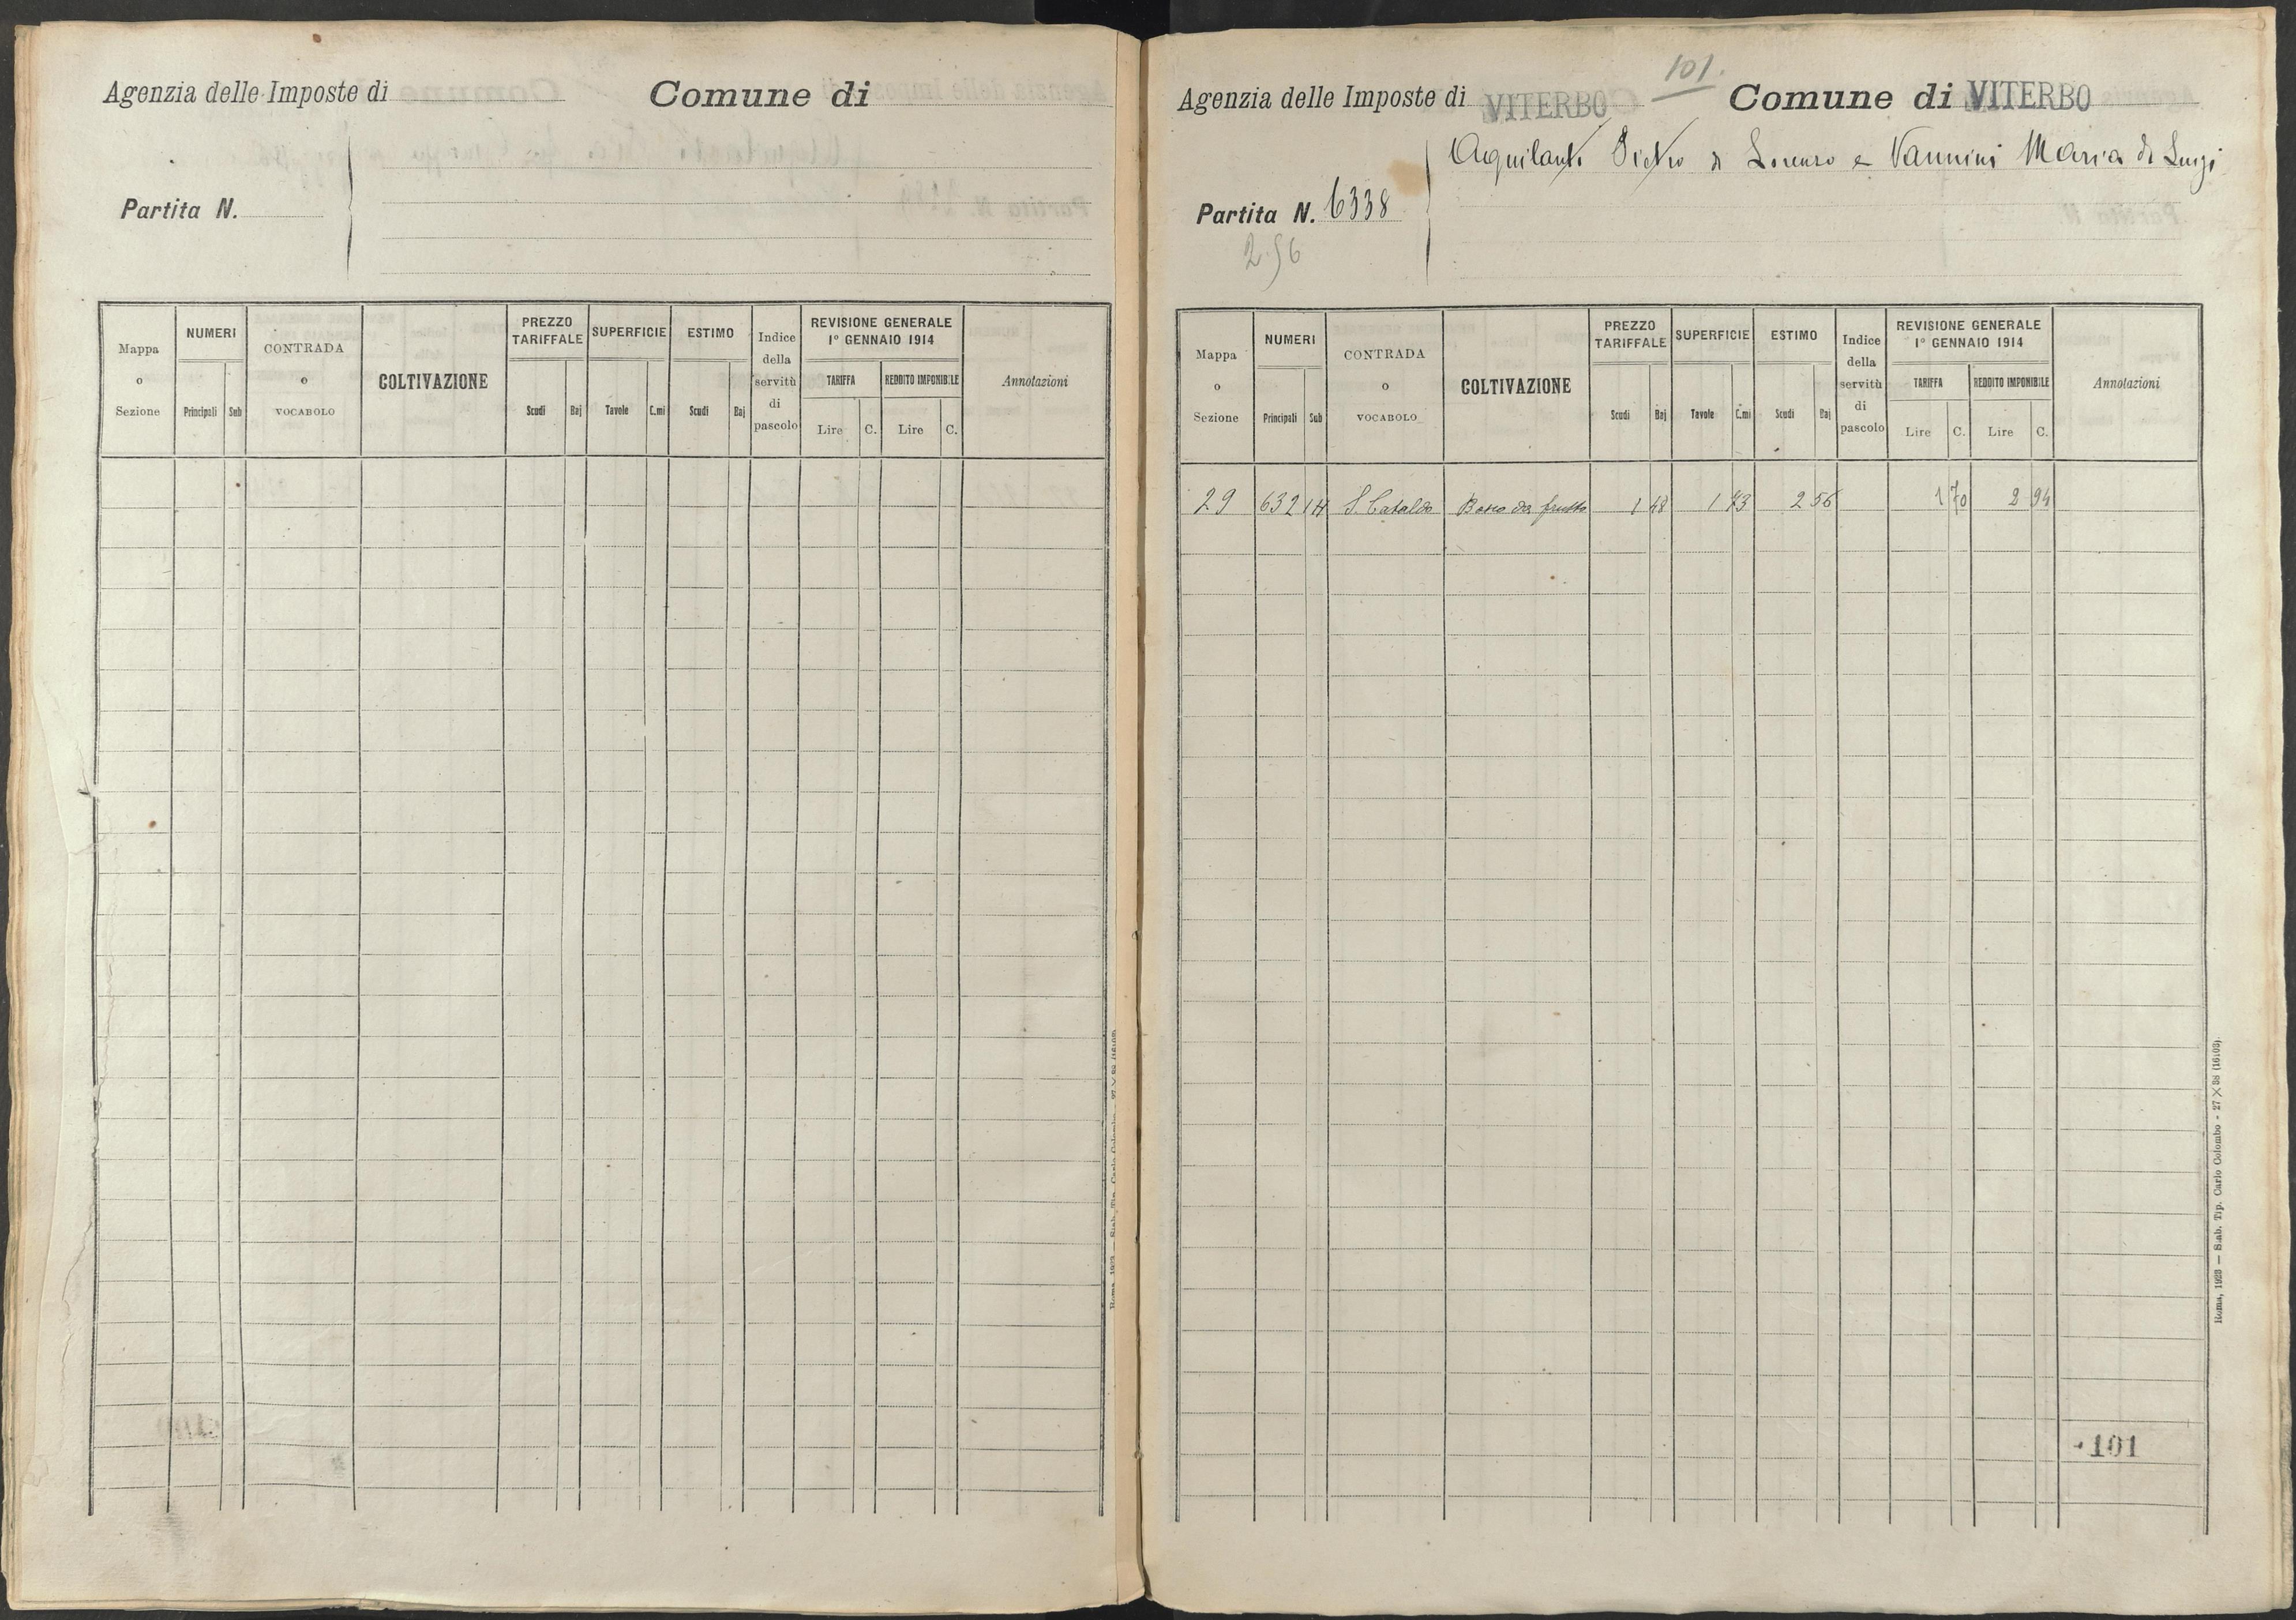 Agenzia delle Imposte di
Comune di
Partita N.
Mappa o Sezione
NUMERI
Principali Sub
CONTRADA o VOCABOLO
COLTIVAZIONE
PREZZO TARIFFALE
Scudi Baj
SUPERFICIE
Tavole C.mi
ESTIMO
Scudi Baj
Indice della servitù di pascolo
REVISIONE GENERALE
1º GENNAIO 1914
TARIFFA REDDITO IMPONIBILE
Lire C. Lire C.
Annotazioni
101.
Agenzia delle Imposte di VITERBO
Comune di VITERBO
Aquilanti Pietro di Lorenzo e Vannini Maria di Luigi
Partita N. 6338
2.56
Mappa o Sezione
NUMERI
Principali Sub
CONTRADA o VOCABOLO
COLTIVAZIONE
PREZZO TARIFFALE
Scudi Baj
SUPERFICIE
Tavole C.mi
ESTIMO
Scudi Baj
Indice della servitù di pascolo
REVISIONE GENERALE
1º GENNAIO 1914
TARIFFA REDDITO IMPONIBILE
Lire C. Lire C.
Annotazioni
29 632 S. Cataldo Bosco da frutto 1 48 1 73 2 56 1 70 2 94
101
Roma, 1923 — Stab. Tip. Carlo Colombo - 27 × 38 (16103).